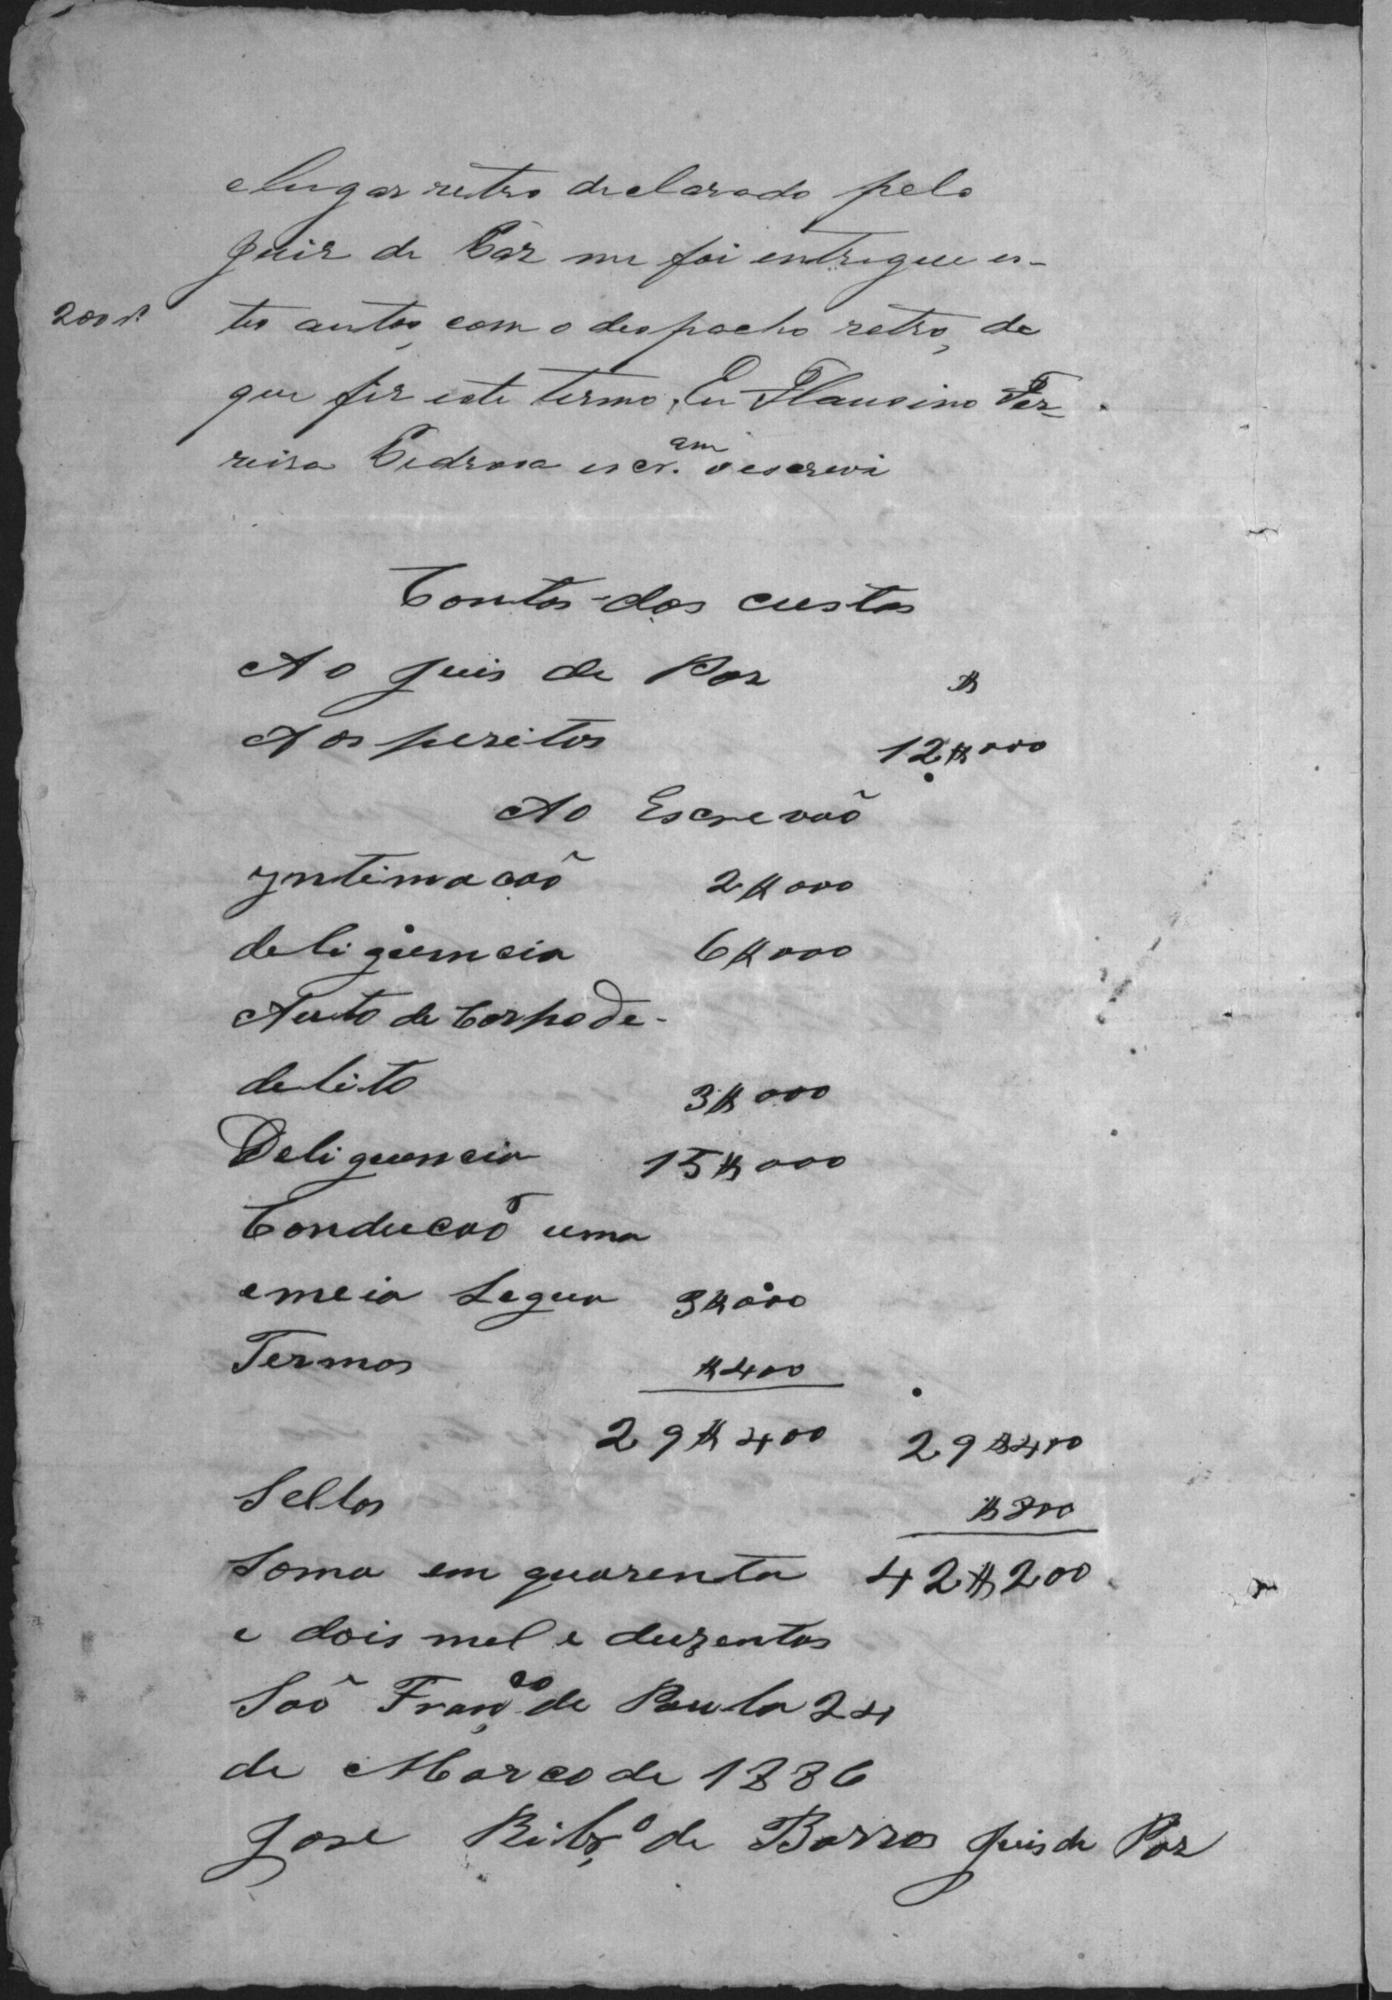 e lugar retro declarado pelo
Juiz de Paz me foi entregue es-
200rs tes autos, com o despacho retro, de
que fiz este termo, Eu Flausino Fer-
reira Pedrosa escr.am o escrevi
Contas das custas
Ao Juis de Paz $
Aos peritos 12$000
Ao Escrevaõ
Yntimacaõ 2$000
deliguencia 6$000
Auto de Corpo de-
delito 3$000
Deliguencia 15$000
Conducaõ uma
e meia Legua 3$000
Termos $400
29$400 29$400
Sellos $800
Soma em quarenta 42$200
e dois mel e duzentos
Saõ Franco de Paula 24
de Marco de 1886
Jose Ribro de Barros Juis de Paz